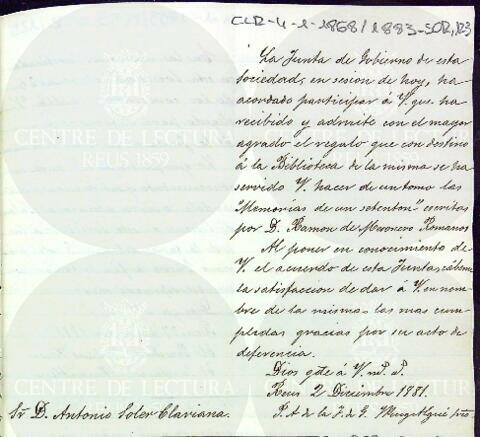 CLR-4-1-1868/1883-SOR,123
La Junta de Gobierno de esta
sociedad, en sesion de hoy, ha
acordado participar á V. que ha
recibido y admite con el mayor
agrado el regalo que con destino
á la Biblioteca de la misma se ha
servido V. hacer de un tomo las
"Memorias de un setenton" escritas
por D. Ramon de Mesonero Romanos
Al poner en conocimiento de
V. el acuerdo de esta Junta, cábeme
la satisfaccion de dar á V. en nom-
bre de la misma las mas cum-
plidas gracias por su acto de
deferencia.
Dios gde á V. ms. as.
Reus 2 Diciembre 1881.
P. A de la J. de G.
Sr D. Antonio Soler Clariana.
CENTRE DE LECTURA
REUS 1859
CENTRE DE LECTURA
REUS 1859
CENTRE DE LECTURA
CENTRE DE LECTURA